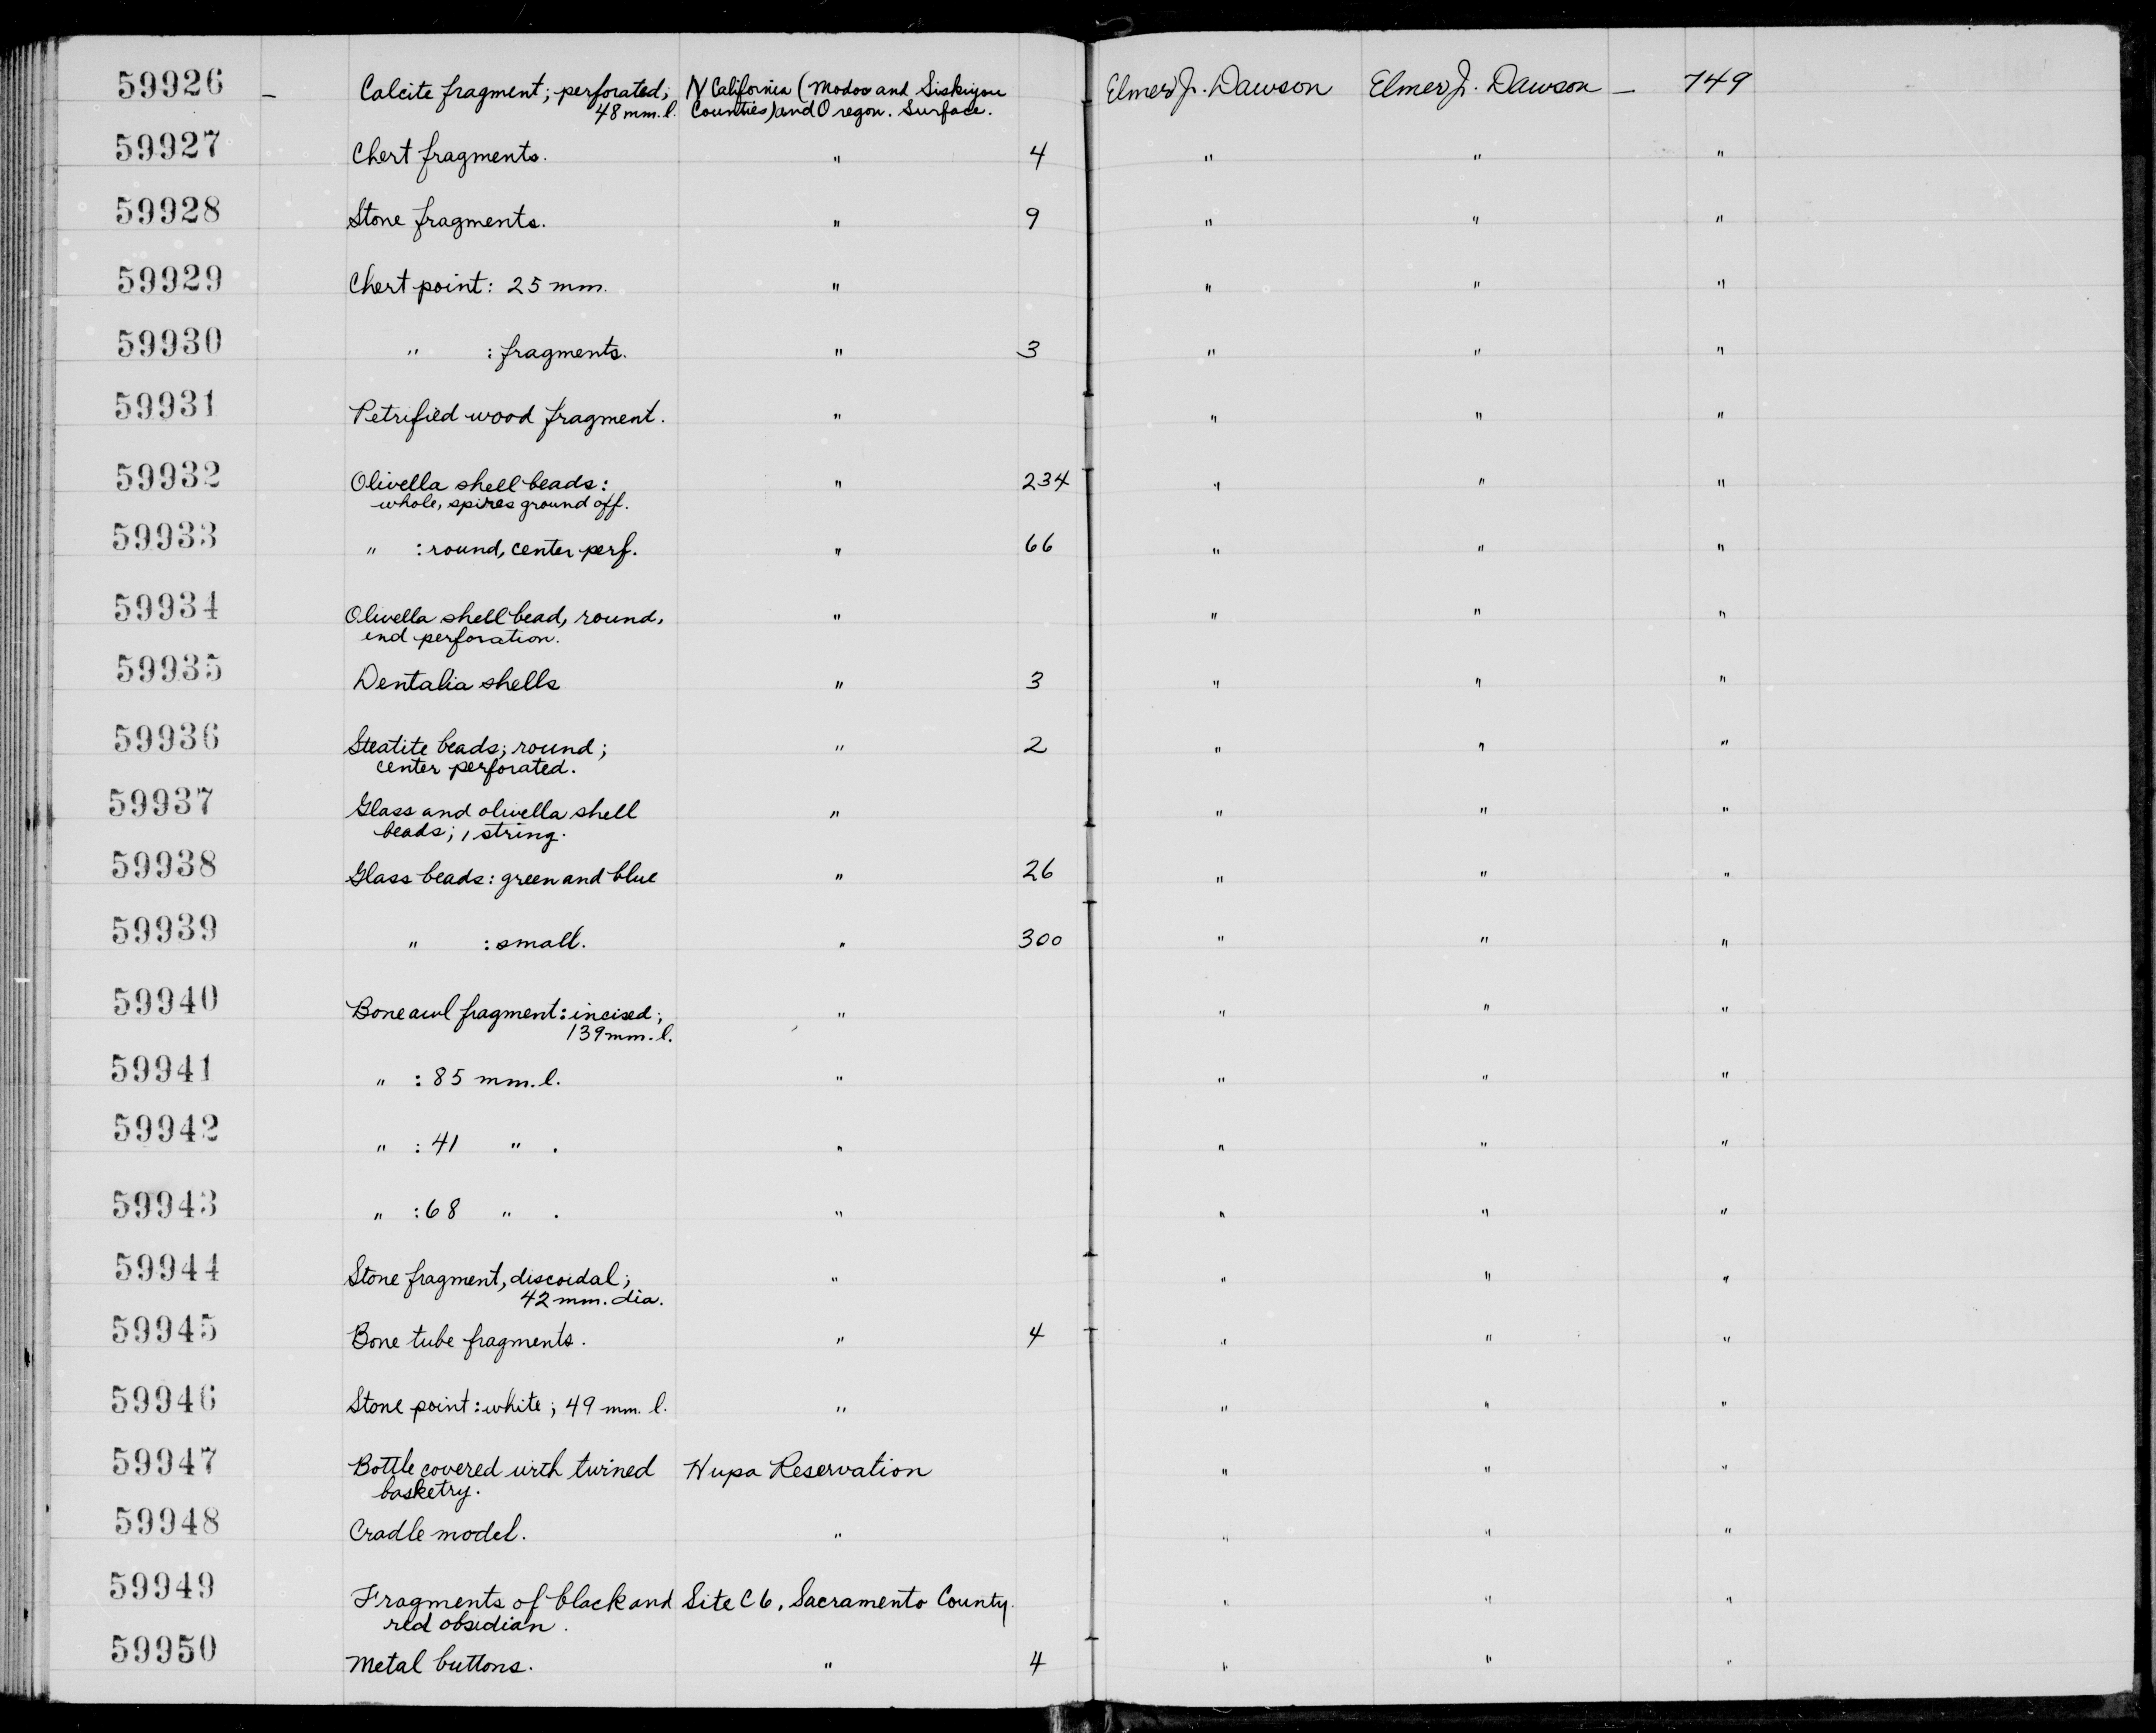 59926 – Calcite fragment; perforated; N California (Modoc and Siskiyou Elmer J. Dawson Elmer J. Dawson – 749
48 mm. l. Counties) and Oregon. Surface.
59927 Chert fragments. " 4 " " "
59928 Stone fragments. " 9 " " "
59929 Chert point: 25 mm. " " " "
59930 " : fragments. " 3 " " "
59931 Petrified wood fragment. " " " "
59932 Olivella shell beads: " 234 " " "
whole, spires ground off.
59933 " : round, center perf. " 66 " " "
59934 Olivella shell bead, round, " " " "
end perforation.
59935 Dentalia shells " 3 " " "
59936 Steatite beads; round; " 2 " " "
center perforated.
59937 Glass and olivella shell " " " "
beads; 1 string.
59938 Glass beads: green and blue " 26 " " "
59939 " : small. " 300 " " "
59940 Bone awl fragment: incised; " " " "
139 mm. l.
59941 " : 85 mm. l. " " " "
59942 " : 41 " . " " " "
59943 " : 68 " . " " " "
59944 Stone fragment, discoidal; " " " "
42 mm. dia.
59945 Bone tube fragments. " 4 " " "
59946 Stone point: white; 49 mm. l. " " " "
59947 Bottle covered with twined Hupa Reservation " " "
basketry.
59948 Cradle model. " " " "
59949 Fragments of black and Site C 6, Sacramento County. " " "
red obsidian.
59950 Metal buttons. " 4 " " "